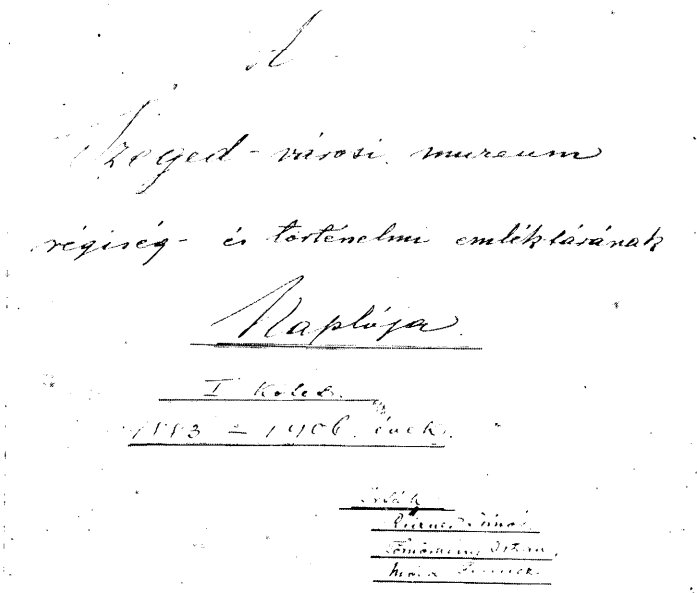 A
Szeged-városi muzeum
régiség- és történelmi emléktárának
Naplója.
I kötet.
1883 – 1906. évek.
Irták
Reizner János
Tömörkény István,
Móra Ferencz.